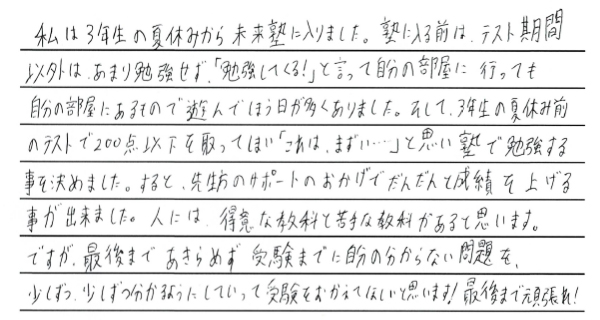 私は3年生の夏休みから未来塾に入りました。塾に入る前は、テスト期間
以外は、あまり勉強せず、「勉強してくる!」と言って自分の部屋に行っても
自分の部屋にあるもので遊んでしまう日が多くありました。そして、3年生の夏休み前
のテストで200点以下を取ってしまい「これは、まずい…」と思い塾で勉強する
事を決めました。すると、先生方のサポートのおかげでだんだんと成績を上げる
事が出来ました。人には、得意な教科と苦手な教科があると思います。
ですが、最後まであきらめず受験までに自分の分からない問題を、
少しずつ、少しずつ分かるようにしていって受験をむかえてほしいと思います!最後まで頑張れ!